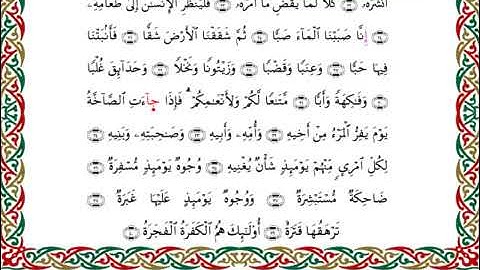 أَنشَرَهُۥ ۝٢٢ كَلَّا لَمَّا يَقْضِ مَآ أَمَرَهُۥ ۝٢٣ فَلْيَنظُرِ ٱلْإِنسَٰنُ إِلَىٰ طَعَامِهِۦٓ
۝٢٤ إِنَّا صَبَبْنَا ٱلْمَآءَ صَبًّا ۝٢٥ ثُمَّ شَقَقْنَا ٱلْأَرْضَ شَقًّا ۝٢٦ فَأَنۢبَتْنَا
فِيهَا حَبًّا ۝٢٧ وَعِنَبًا وَقَضْبًا ۝٢٨ وَزَيْتُونًا وَنَخْلًا ۝٢٩ وَحَدَآئِقَ غُلْبًا
۝٣٠ وَفَٰكِهَةً وَأَبًّا ۝٣١ مَّتَٰعًا لَّكُمْ وَلِأَنْعَٰمِكُمْ ۝٣٢ فَإِذَا جَآءَتِ ٱلصَّآخَّةُ
۝٣٣ يَوْمَ يَفِرُّ ٱلْمَرْءُ مِنْ أَخِيهِ ۝٣٤ وَأُمِّهِۦ وَأَبِيهِ ۝٣٥ وَصَٰحِبَتِهِۦ وَبَنِيهِ ۝٣٦
لِكُلِّ ٱمْرِئٍ مِّنْهُمْ يَوْمَئِذٍ شَأْنٌ يُغْنِيهِ ۝٣٧ وُجُوهٌ يَوْمَئِذٍ مُّسْفِرَةٌ ۝٣٨
ضَاحِكَةٌ مُّسْتَبْشِرَةٌ ۝٣٩ وَوُجُوهٌ يَوْمَئِذٍ عَلَيْهَا غَبَرَةٌ ۝٤٠
تَرْهَقُهَا قَتَرَةٌ ۝٤١ أُو۟لَٰٓئِكَ هُمُ ٱلْكَفَرَةُ ٱلْفَجَرَةُ ۝٤٢